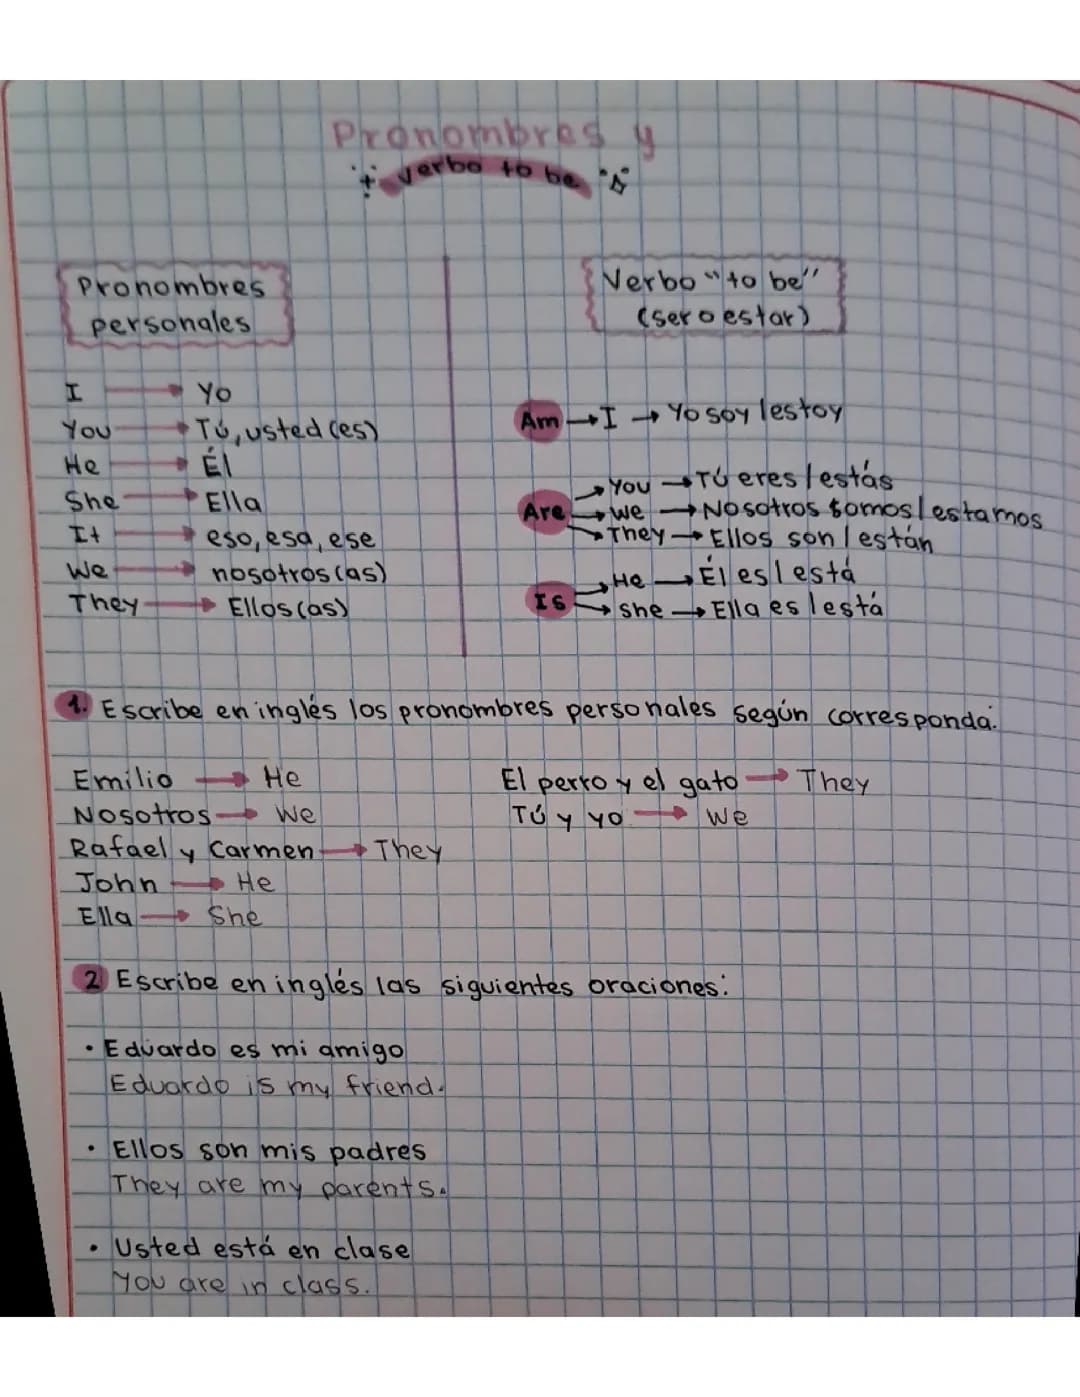 Pronombres y
verbo to be
Pronombres
personales
I → Yo
You → Tú, usted (es)
He → Él
She → Ella
It → eso, esa, ese
We → nosotros (as)
They → Ellos (as)
Verbo "to be"
(ser o estar)
Am → I → Yo soy / estoy
Are → You → Tú eres / estás
→ We → Nosotros somos / estamos
→ They → Ellos son / están
Is → He → Él es / está
→ she → Ella es / está
1. Escribe en inglés los pronombres personales según corresponda:
Emilio → He
Nosotros → We
Rafael y Carmen → They
John → He
Ella → She
El perro y el gato → They
Tú y yo → We
2 Escribe en inglés las siguientes oraciones:
• Eduardo es mi amigo
Eduardo is my friend.
• Ellos son mis padres
They are my parents.
• Usted está en clase
You are in class.